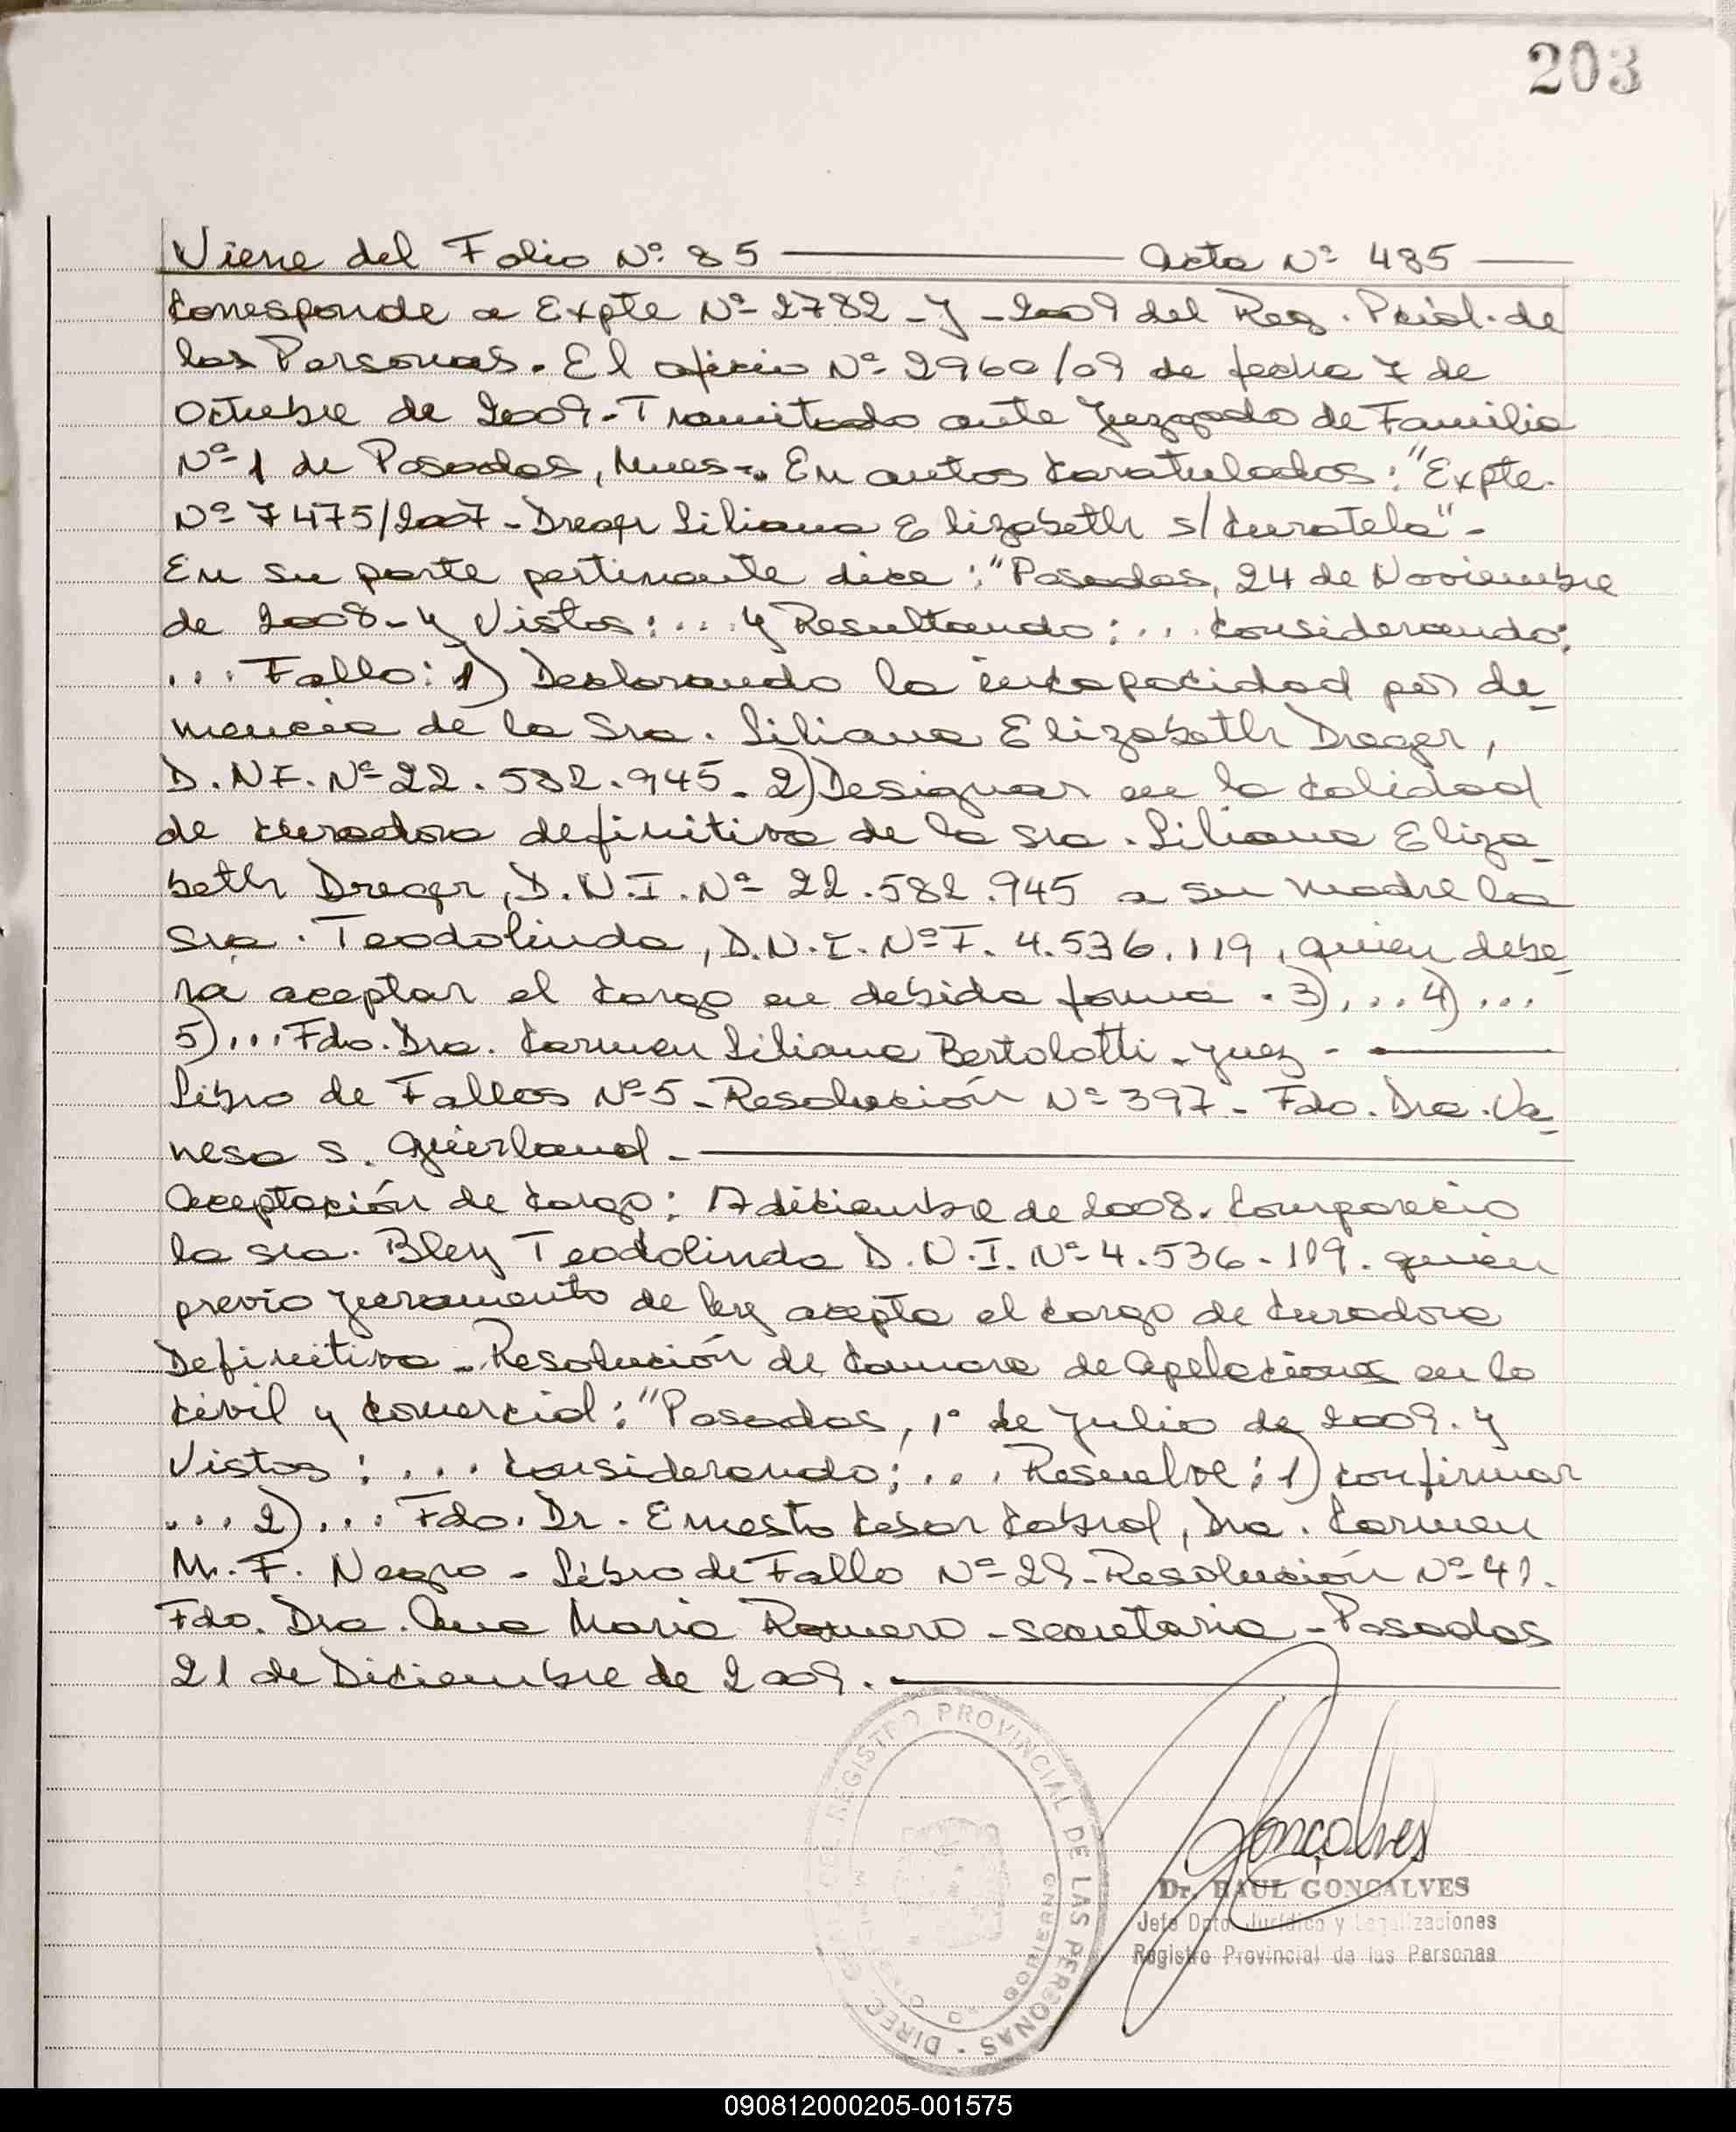 203
Viene del Folio Nº 85 — Acta Nº 485 —
Corresponde a Expte Nº 2782-Y-2009 del Reg. Pcial. de
las Personas. El oficio Nº 2960/09 de fecha 7 de
Octubre de 2009-Tramitado ante Juzgado de Familia
Nº 1 de Posadas, Mnes-. En autos Caratulados: "Expte.
Nº 7475/2007-Dreger Liliana Elizabeth s/Curatela"-
En su parte pertinente dice: "Posadas, 24 de Noviembre
de 2008-Y Vistos:... Y Resultando:... Considerando:
... Fallo: 1) Declarando la incapacidad por de_
mencia de la Sra. Liliana Elizabeth Dreger,
D.NI. Nº 22.582.945. 2) Designar en la calidad
de curadora definitiva de la Sra. Liliana Eliza_
beth Dreger, D.N.I. Nº 22.582.945 a su madre la
Sra. Teodolinda, D.N.I. Nº F. 4.536.119, quien debe_
rá aceptar el Cargo en debida forma. 3)... 4)...
5)... Fdo. Dra. Carmen Liliana Bertolotti-Juez-
Libro de Fallos Nº 5-Resolución Nº 397- Fdo. Dra. Va_
nesa S. Guierland.-
Aceptación de Cargo: 17 diciembre de 2008. Compareció
la sra. Bley Teodolinda D.N.I. Nº 4.536.119. quien
previo juramento de ley acepta el cargo de Curadora
Definitiva-Resolución de Camara de Apelaciones en lo
Civil y Comercial: "Posadas, 1º de Julio de 2009. Y
Vistos:... Considerando:... Resuelve: 1) confirmar
... 2)... Fdo. Dr. Ernesto Cesar Cabral, Dra. Carmen
M. F. Negro-Libro de Fallo Nº 29-Resolución Nº 41.
Fdo. Dra. Ana Maria Romero-secretaria-Posadas
21 de Diciembre de 2009.
DIREC GRAL DEL REGISTRO PROVINCIAL DE LAS PERSONAS
GOBIERNO
Gonçalves
Dr. RAUL GONCALVES
Jefe Dpto. Jurídico y Legalizaciones
Registro Provincial de las Personas
090812000205-001575